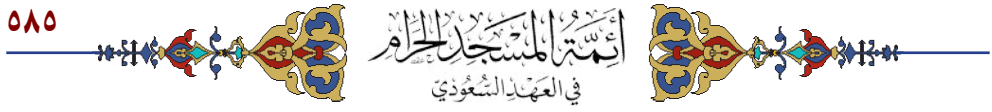 ٥٨٥
أَئِمَّةُ المَسْجِدِ الحَرَامِ
فِي العَهْدِ السُّعُودِيّ